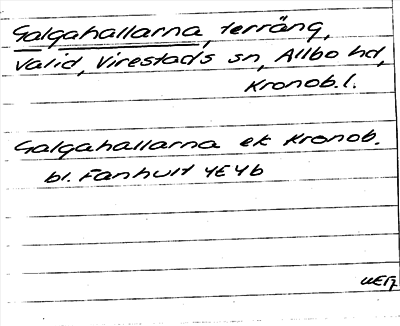 Galgahallarna, terräng,
Valid, Virestads sn, Allbo hd,
Kronob.l.
Galgahallarna ek Kronob.
bl. Fanhult 4E4b